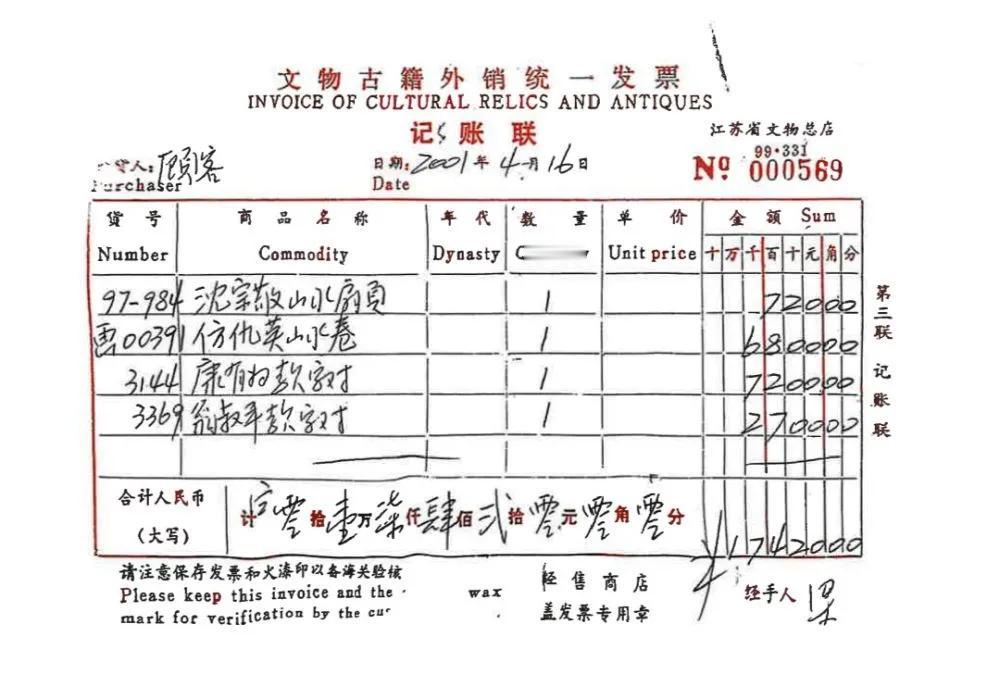 文物古籍外销统一发票
INVOICE OF CULTURAL RELICS AND ANTIQUES
记账联
江苏省文物总店
99·331
Nº 000569
货人:顾客
Purchaser
日期:2001年4月16日
Date
货号 商品名称 年代 数量 单价 金额 Sum
Number Commodity Dynasty Unit price 十万千百十元角分
97-984 沈宗敬山水扇页 1 72000
画00391 仿仇英山水卷 1 680000
3144 康有为款字对 1 720000
3369 翁叔平款字对 1 270000
合计人民币
(大写)
计零拾壹万柒仟肆佰贰拾零元零角零分
¥1742000
第三联 记账联
请注意保存发票和火漆印以备海关验核
Please keep this invoice and the wax
mark for verification by the cus
经售商店
盖发票专用章
经手人